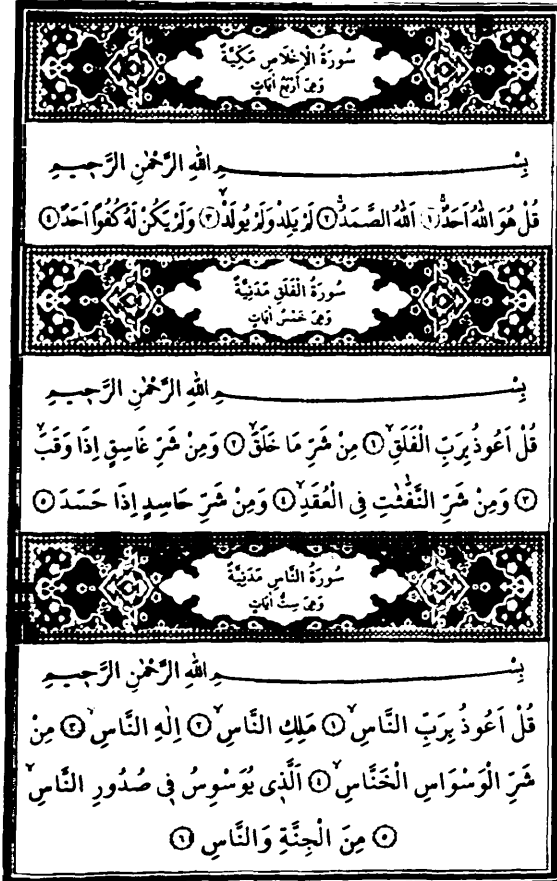 سُورَةُ الْاِخْلَاصِ مَكِّيَّةٌ
وَهِيَ اَرْبَعُ اٰيَاتٍ
بِسْمِ اللّٰهِ الرَّحْمٰنِ الرَّحِيمِ
قُلْ هُوَ اللّٰهُ اَحَدٌۚ ﴿١﴾ اَللّٰهُ الصَّمَدُۚ ﴿٢﴾ لَمْ يَلِدْ وَلَمْ يُولَدْۙ ﴿٣﴾ وَلَمْ يَكُنْ لَهُ كُفُوًا اَحَدٌ ﴿٤﴾
سُورَةُ الْفَلَقِ مَدَنِيَّةٌ
وَهِيَ خَمْسُ اٰيَاتٍ
بِسْمِ اللّٰهِ الرَّحْمٰنِ الرَّحِيمِ
قُلْ اَعُوذُ بِرَبِّ الْفَلَقِۙ ﴿١﴾ مِنْ شَرِّ مَا خَلَقَۙ ﴿٢﴾ وَمِنْ شَرِّ غَاسِقٍ اِذَا وَقَبَۙ
﴿٣﴾ وَمِنْ شَرِّ النَّفَّٰثَتِ فِى الْعُقَدِۙ ﴿٤﴾ وَمِنْ شَرِّ حَاسِدٍ اِذَا حَسَدَ ﴿٥﴾
سُورَةُ النَّاسِ مَدَنِيَّةٌ
وَهِيَ سِتُّ اٰيَاتٍ
بِسْمِ اللّٰهِ الرَّحْمٰنِ الرَّحِيمِ
قُلْ اَعُوذُ بِرَبِّ النَّاسِۙ ﴿١﴾ مَلِكِ النَّاسِۙ ﴿٢﴾ اِلٰهِ النَّاسِۙ ﴿٣﴾ مِنْ
شَرِّ الْوَسْوَاسِ الْخَنَّاسِۙ ﴿٤﴾ اَلَّذِى يُوَسْوِسُ فِى صُدُورِ النَّاسِۙ
﴿٥﴾ مِنَ الْجِنَّةِ وَالنَّاسِ ﴿٦﴾